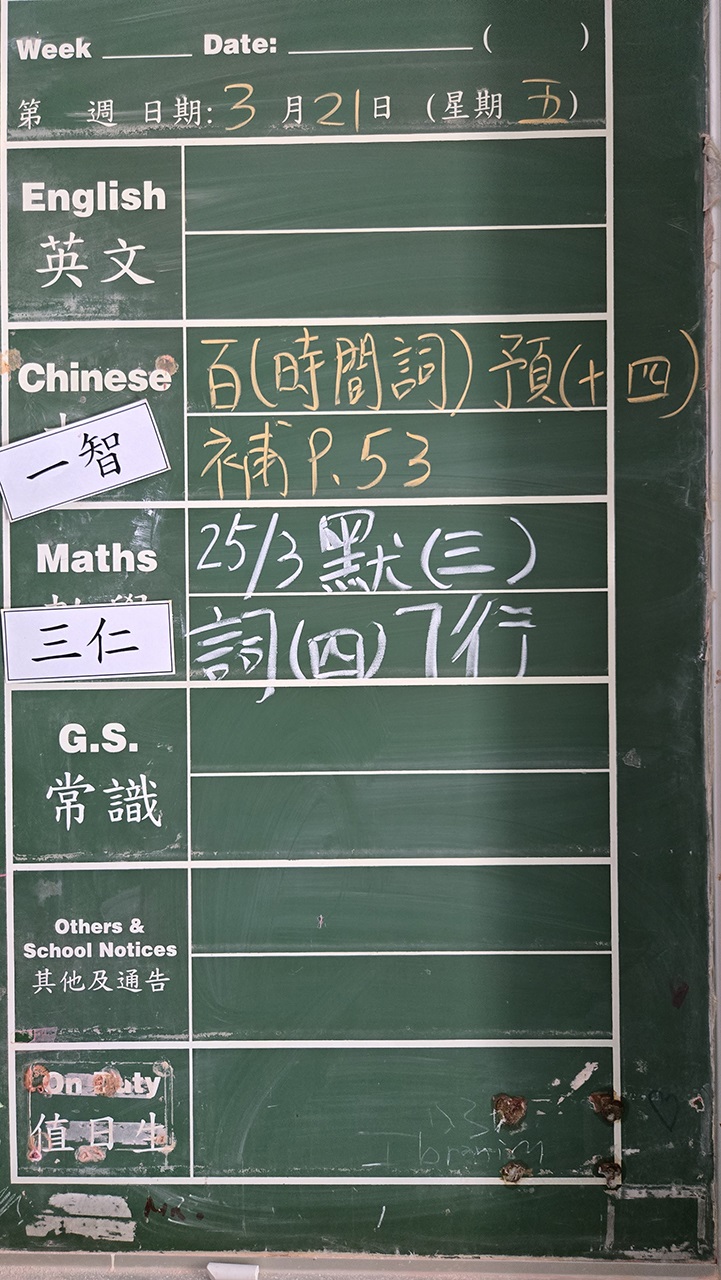 Week ______ Date: ____________ (      )
第 週 日期: 3 月 21 日 (星期 五)
English
英文
Chinese
百(時間詞) 預(十四)
一智
補 P.53
Maths
25/3 默(三)
三仁
詞(四) 7行
G.S.
常識
Others &
School Notices
其他及通告
On Duty
值日生